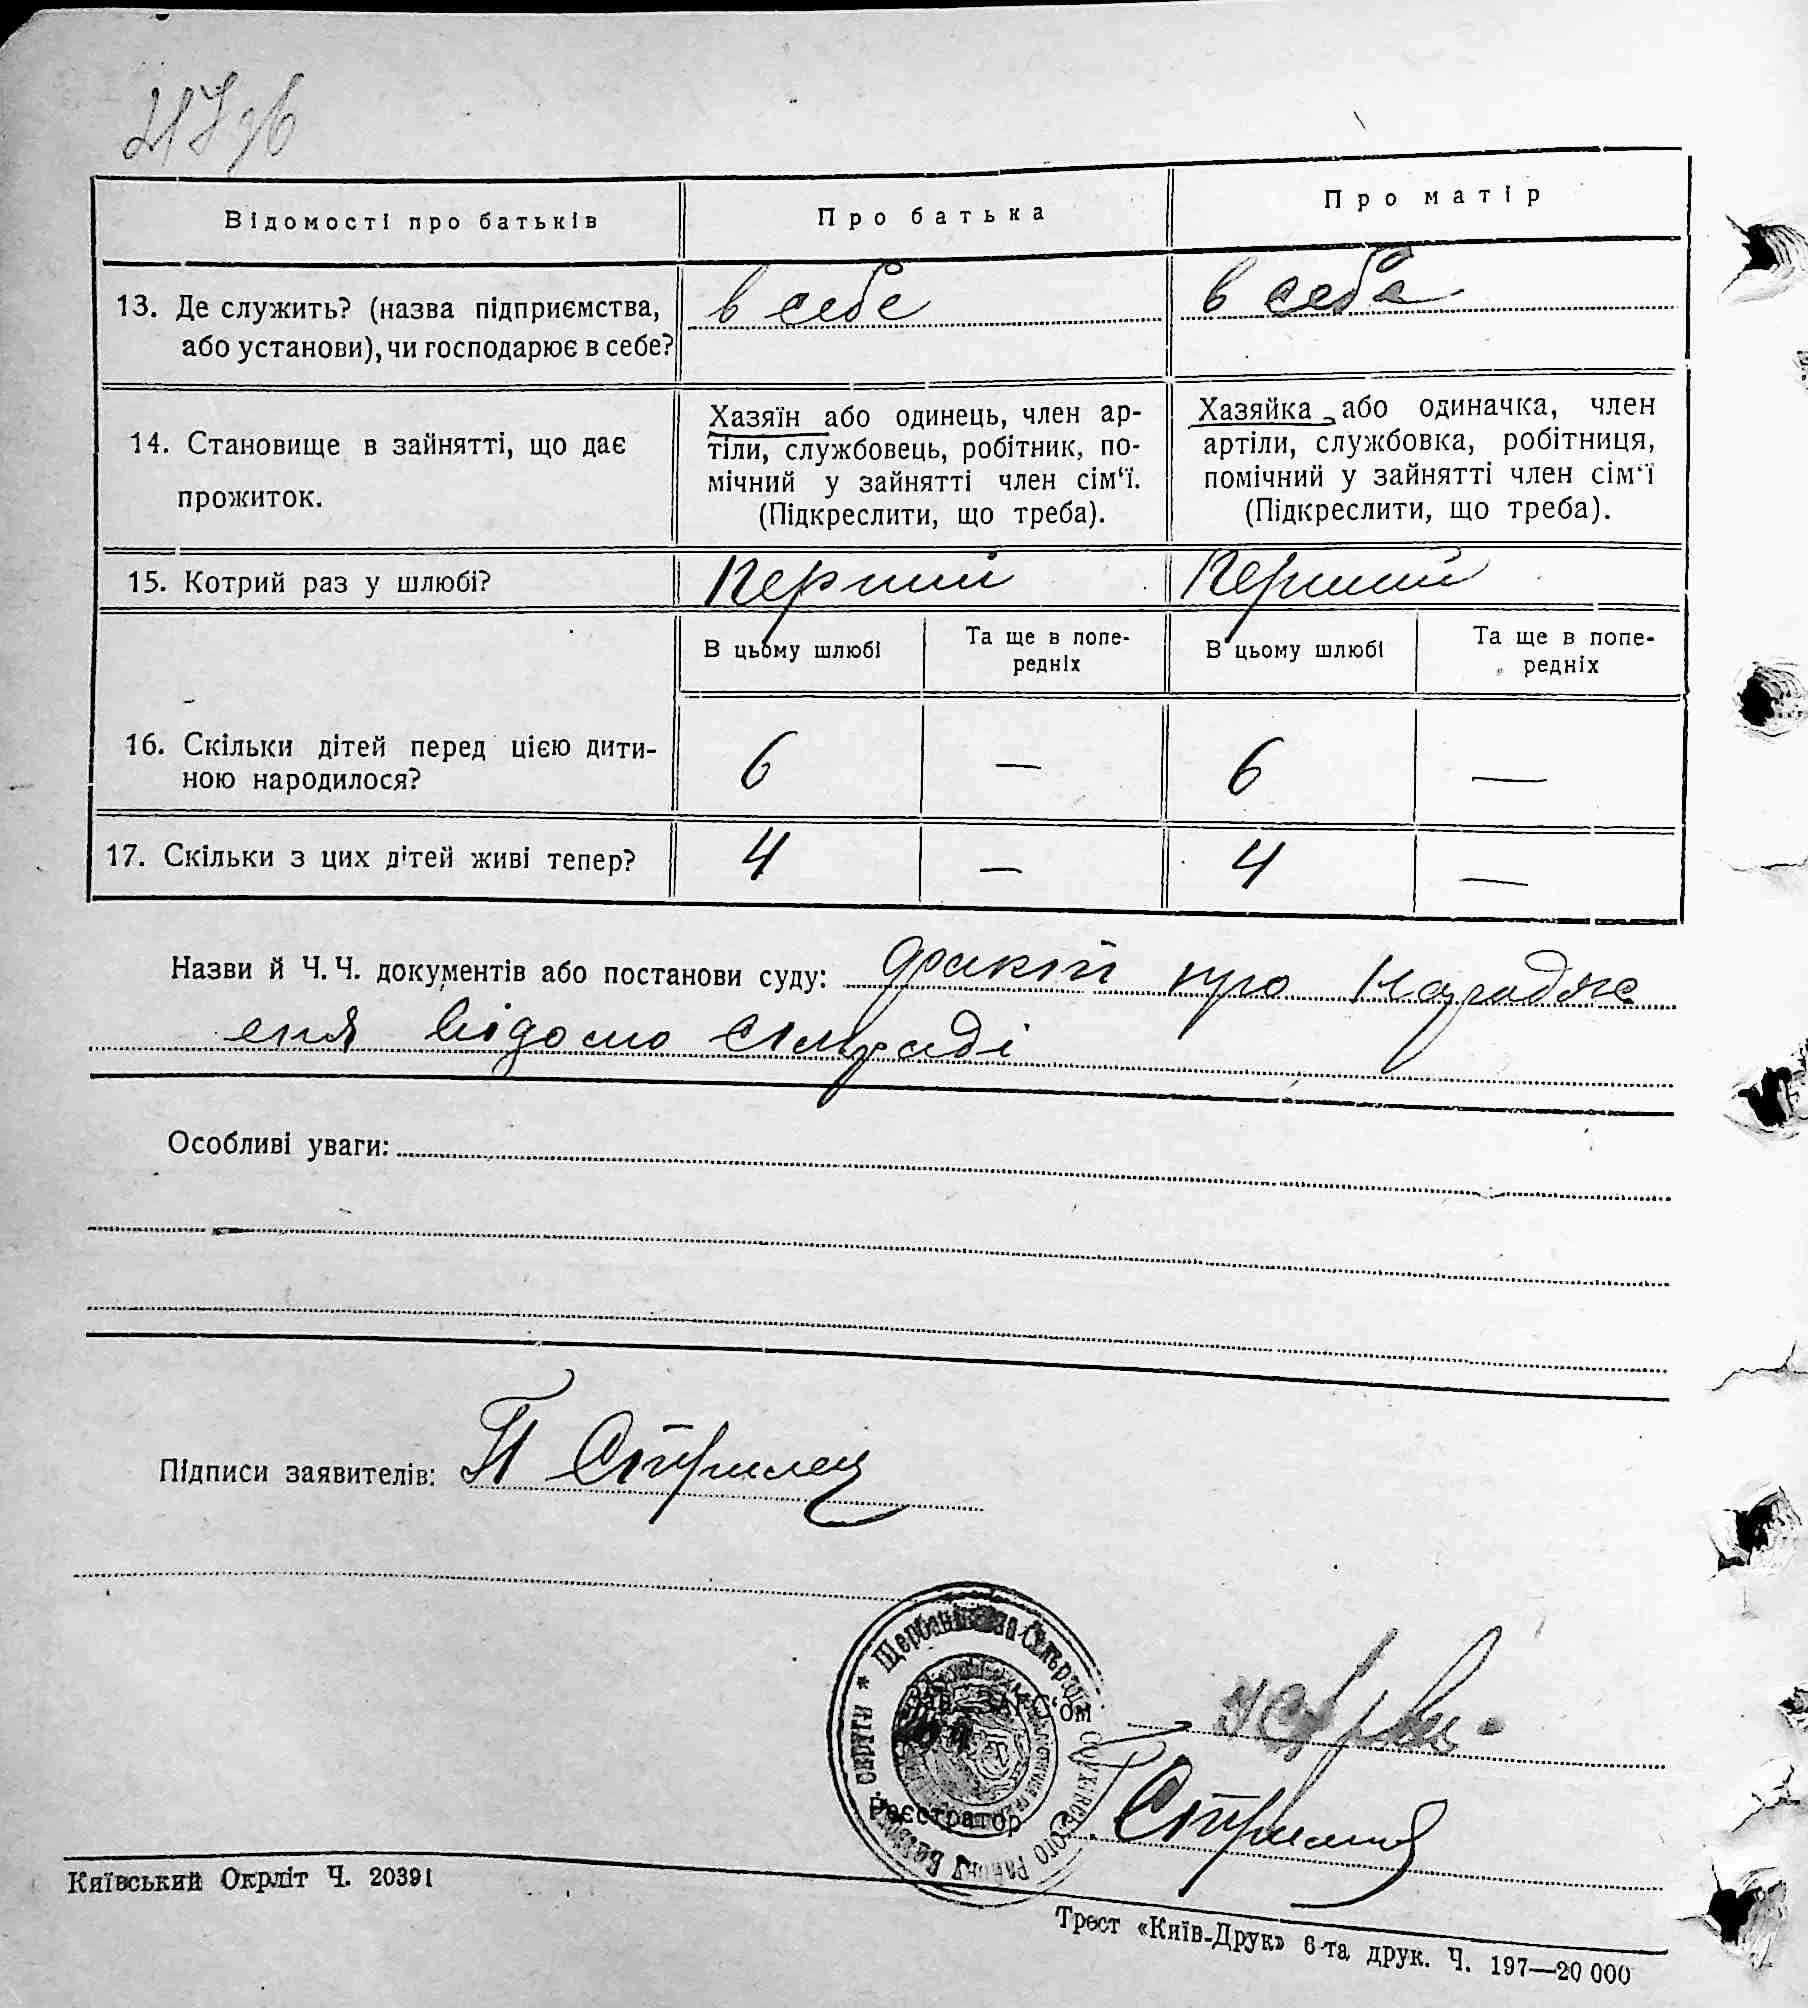 217 зв
Відомості про батьків
Про батька
Про матір
13. Де служить? (назва підприємства, або установи), чи господарює в себе?
в себе
в себе
14. Становище в зайнятті, що дає прожиток.
Хазяїн або одинець, член ар-
тіли, службовець, робітник, по-
мічний у зайнятті член сім'ї.
(Підкреслити, що треба).
Хазяйка або одиначка, член
артіли, службовка, робітниця,
помічний у зайнятті член сім'ї
(Підкреслити, що треба).
15. Котрий раз у шлюбі?
Перший
Перший
В цьому шлюбі
Та ще в попе-
редніх
В цьому шлюбі
Та ще в попе-
редніх
16. Скільки дітей перед цією дити-
ною народилося?
6 — 6 —
17. Скільки з цих дітей живі тепер?
4 — 4 —
Назви й Ч. Ч. документів або постанови суду:
про
відомо сільраді
Особливі уваги:
Підписи заявителів: П Стрилец
Зав. ЗАГС'ом
Реєстратор
Київський Окрліт Ч. 20391
Трест «Київ-Друк» 6-та друк. Ч. 197—20 000